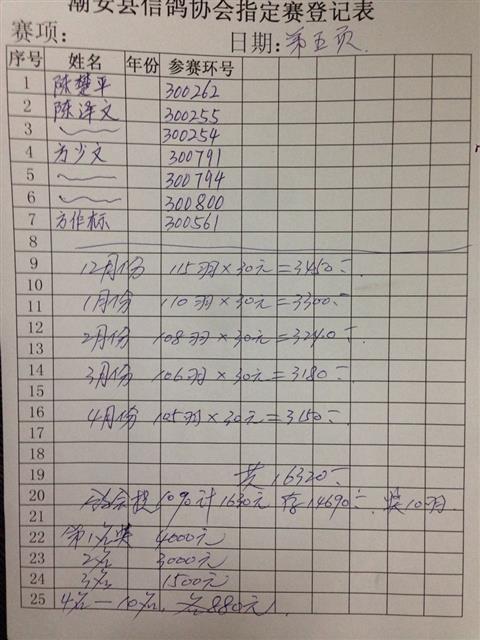 潮安县信鸽协会指定赛登记表
赛项: 日期: 第五页.
序号 姓名 年份 参赛环号
1 陈楚平 300262
2 陈泽文 300255
3 300254
4 方少文 300791
5 300794
6 300800
7 方作标 300561
8
9 12月份 115羽×30元=3450
10
11 1月份 110羽×30元=3300
12 2月份 108羽×30元=3240
13
14 3月份 106羽×30元=3180
15
16 4月份 105羽×30元=3150
17
18
19 共16320
20 协会提10%计1630元 存14690 奖10羽.
21
22 第1名奖 4000元
23 2名 3000元
24 3名 1500元
25 4名—10名, 各880元.